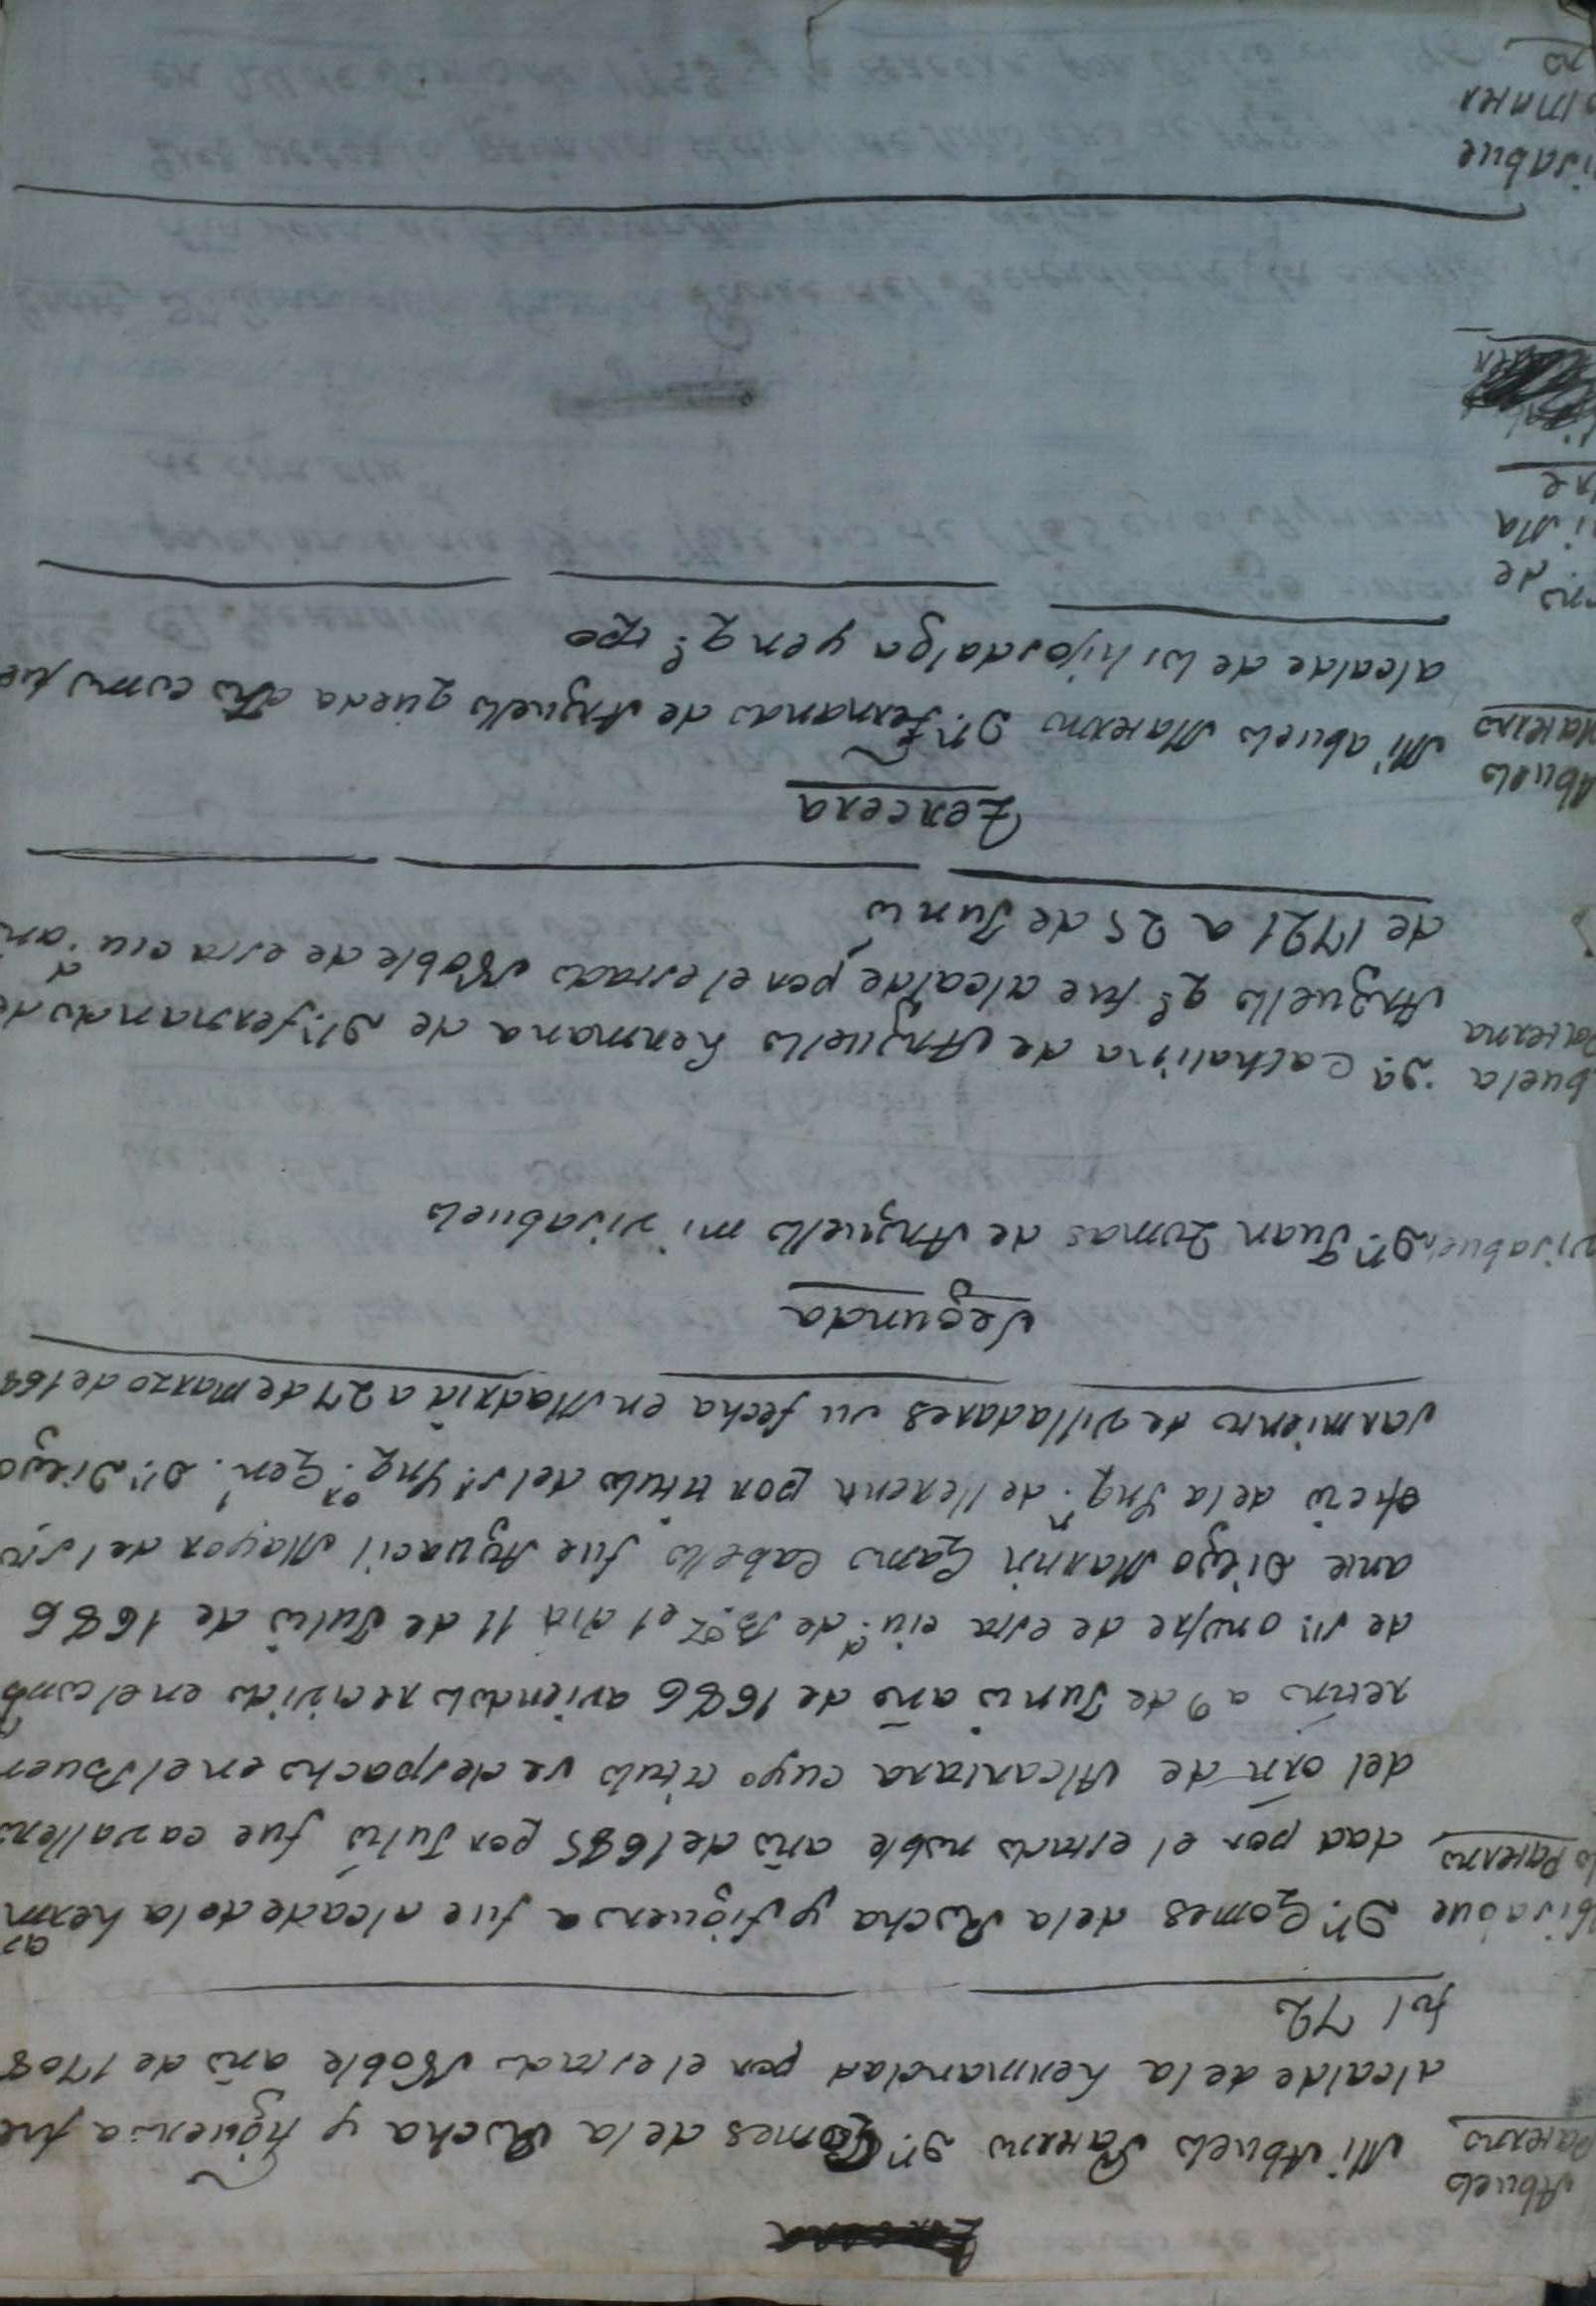 Abuelo
Paterno
Mi Abuelo Paterno Dn. Gomes de la Rocha y figueroa fue
alcalde de la hermandad por el estado Noble año de 1708
fol 72
bisabue
lo Paterno
Dn. Gomes de la Rocha y figueroa fue alcade de la herm
dad por el estado noble año de 1685 por Julio fue cavallero
del orn de Alcantara cuyo titulo se despacho en el Buen
retiro a 9 de Junio año de 1686 aviendolo recivido en el comb
de sn. onofre de esta ciud. de Boz el dia 11 de Julio de 1686
ante Diego Martin Gamo Cabello fue Alguacil Mayor del sto
ofiero de la Ynqn. de llerena por titulo del sr. Ynqor. Genl. Dn. Diego
sarmiento de villadares su fecha en Madrid a 27 de marzo de 168
Segunda
visabuelo
Dn. Juan Tomas de Arguello mi visabuelo
buela
Paterna
Da. Cathalina de Arguello hermana de Dn. fernando de
Arguello qe fue alcalde por el estado Noble de esta ciud. año
de 1721 a 25 de Junio
Tercera
Abuelo
Materno
Mi abuelo Materno Dn. fernando de Arguello queda dho como fue
alcalde de los hijosdalgo y en qe tpo
no de
mi Ma
re
isabue
Matern
no